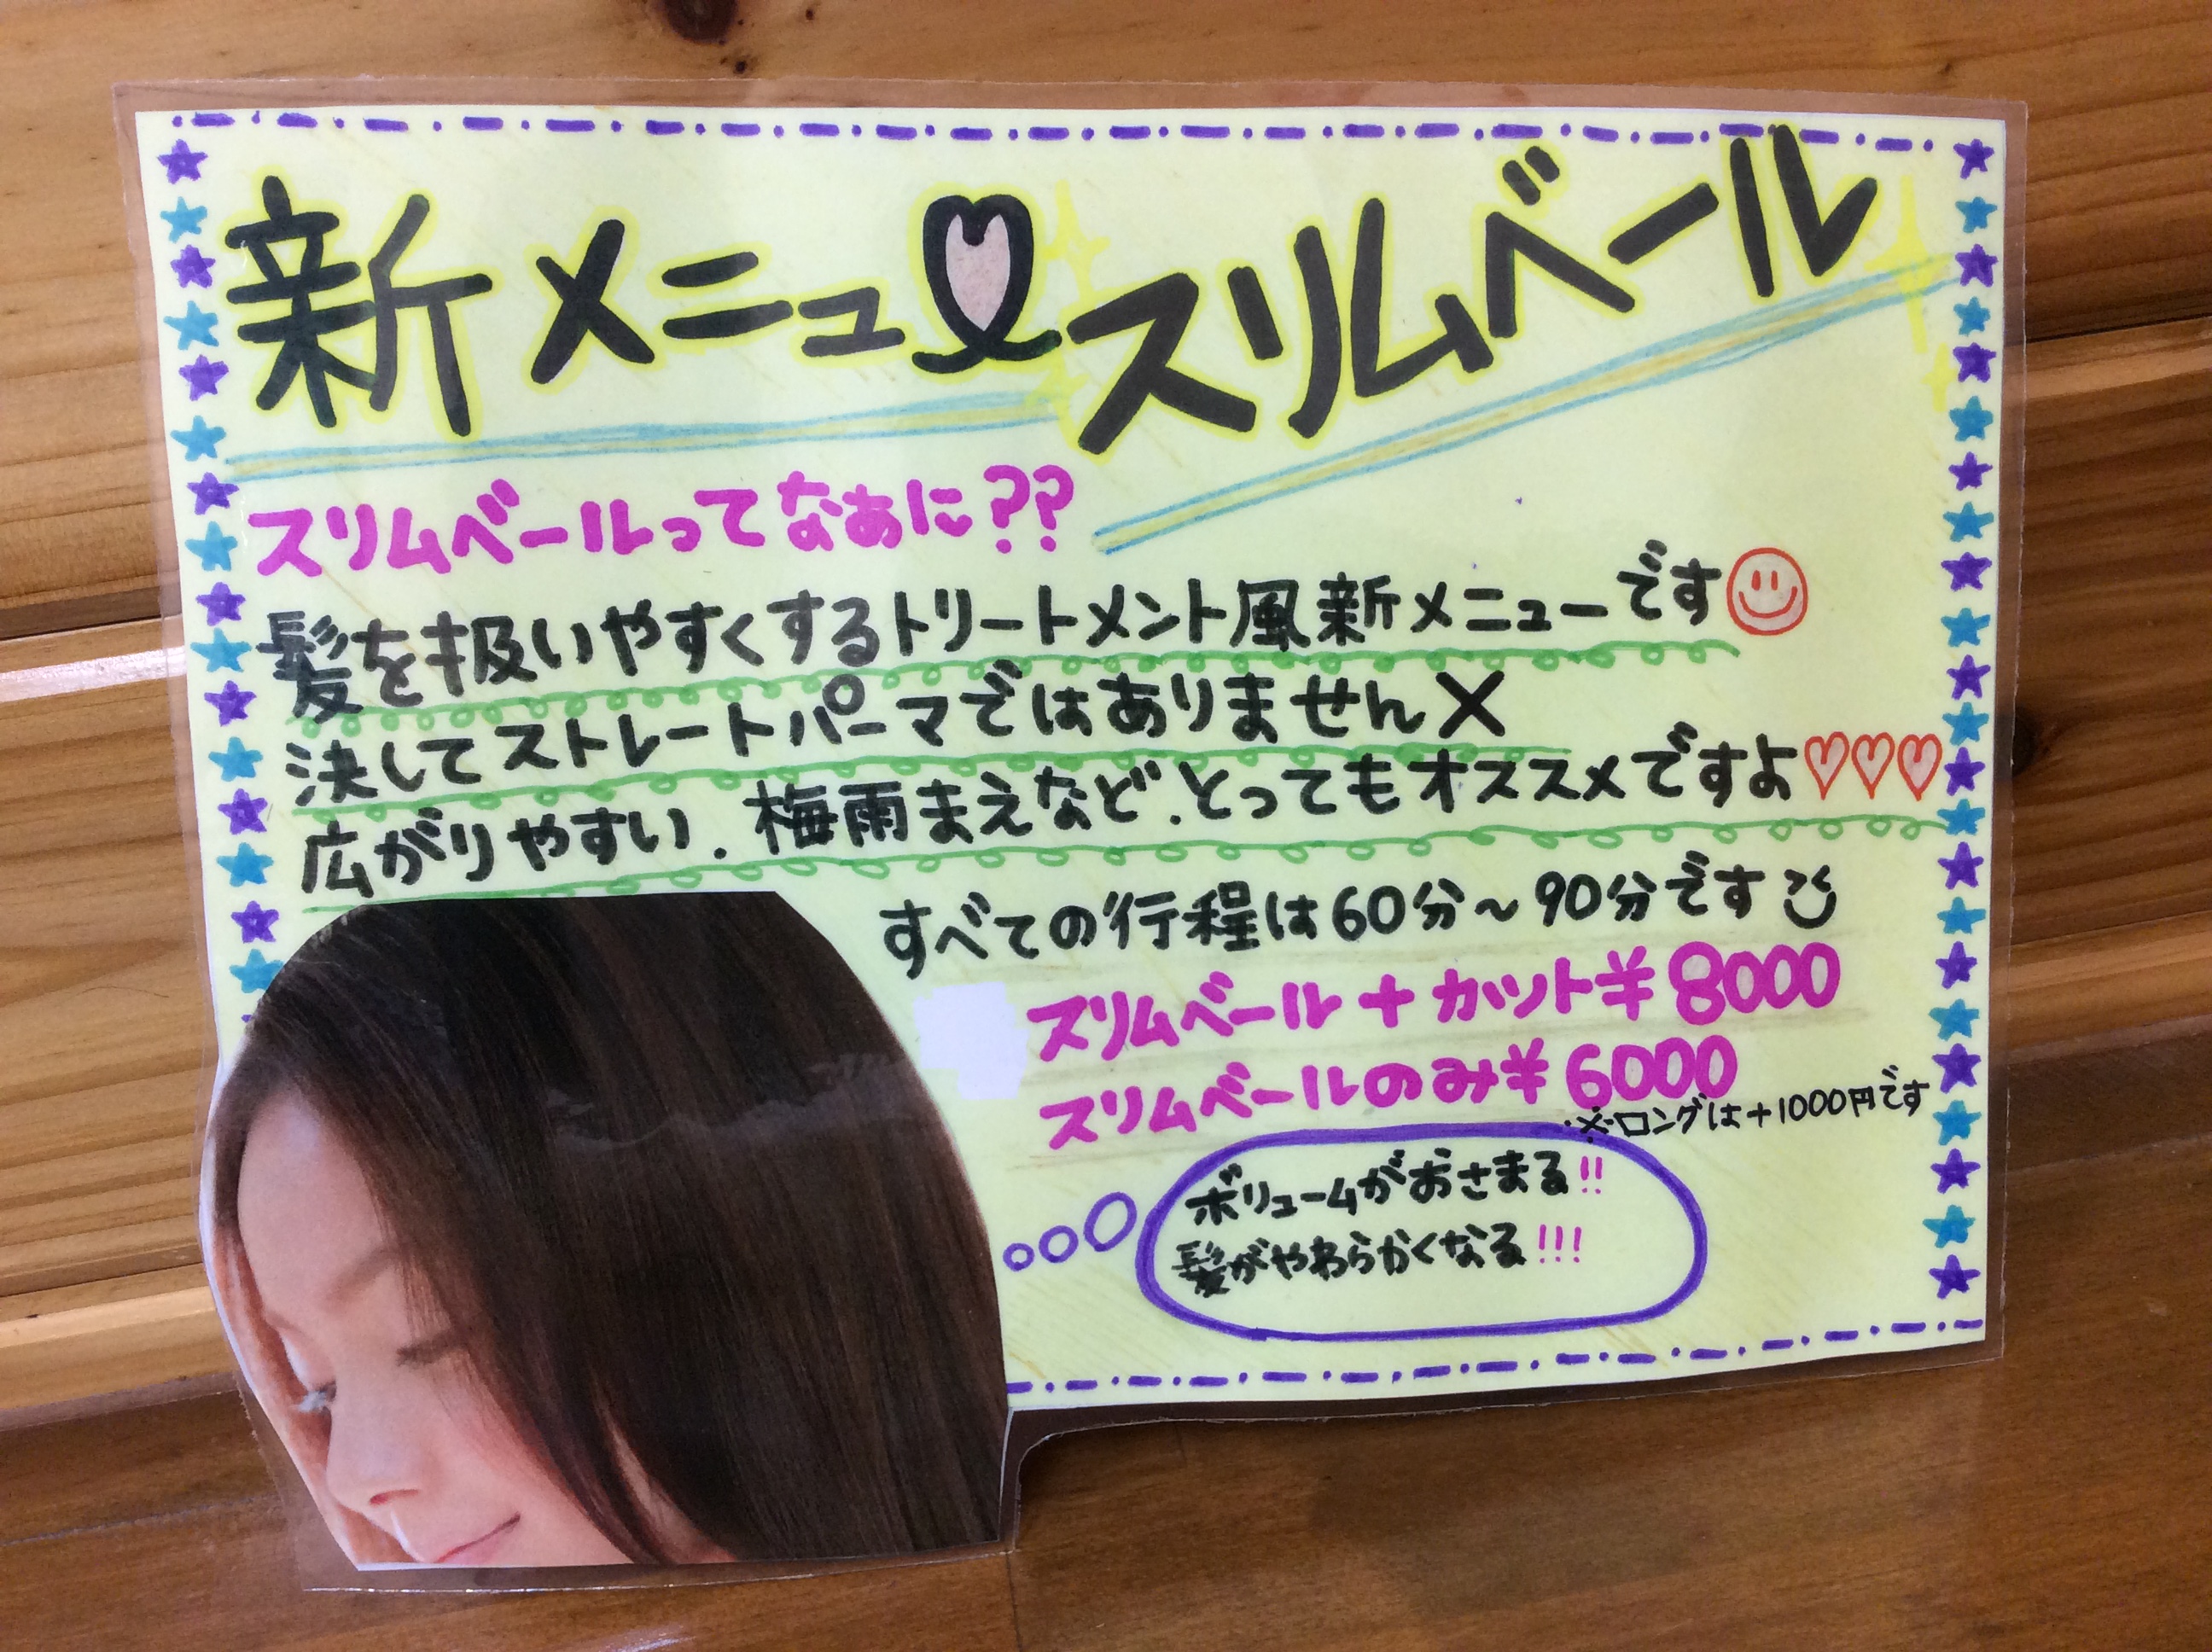 新メニュースリムベール
スリムベールってなぁに??
髪を扱いやすくするトリートメント風新メニューです
決してストレートパーマではありません✕
広がりやすい.梅雨まえなど.とってもオススメですよ♡♡♡
すべての行程は60分～90分です
スリムベール+カット¥8000
スリムベールのみ¥6000
※ロングは+1000円です
ボリュームがおさまる!!
髪がやわらかくなる!!!